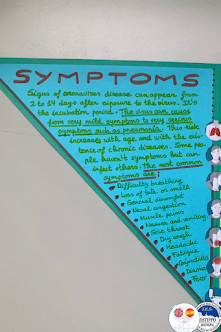 SYMPTOMS
Signs of coronavirus disease can appear from
2 to 14 days after exposure to the virus. It's
the incubation period. The virus can cause
from very mild symptoms to very serious
symptoms such as pneumonia. This risk
increases with age and with the exis-
tence of chronic diseases. Some peo-
ple haven't symptoms but can
infect others. The most common
symptoms are:
Difficulty breathing
Loss of taste or smell
General discomfort
Nasal congestion
Muscle pains
Nausea and vomiting
Sore throat
Dry cough
Headache
Fatigue
Fever